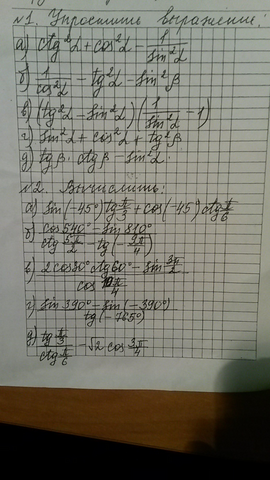 №1. Упростить выражение:
а) ctg²α + cos²α - 1/sin²α
б) 1/cos²α - tg²α - sin²β
в) (tg²α - sin²α)(1/sin²α - 1)
г) sin²α + cos²α + tg²β
д) tgβ · ctgβ - sin²α
№2. Вычислить:
а) sin(-45°)tg π/3 + cos(-45°)ctg π/6
б) (cos540° - sin810°)/(ctg 5π/2 - tg(-3π/4))
в) (2cos30° ctg60° - sin 3π/2)/(cos π/4)
г) (sin390° - sin(-390°))/(tg(-765°))
д) (tg π/3)/(ctg π/6) - √2 cos 3π/4